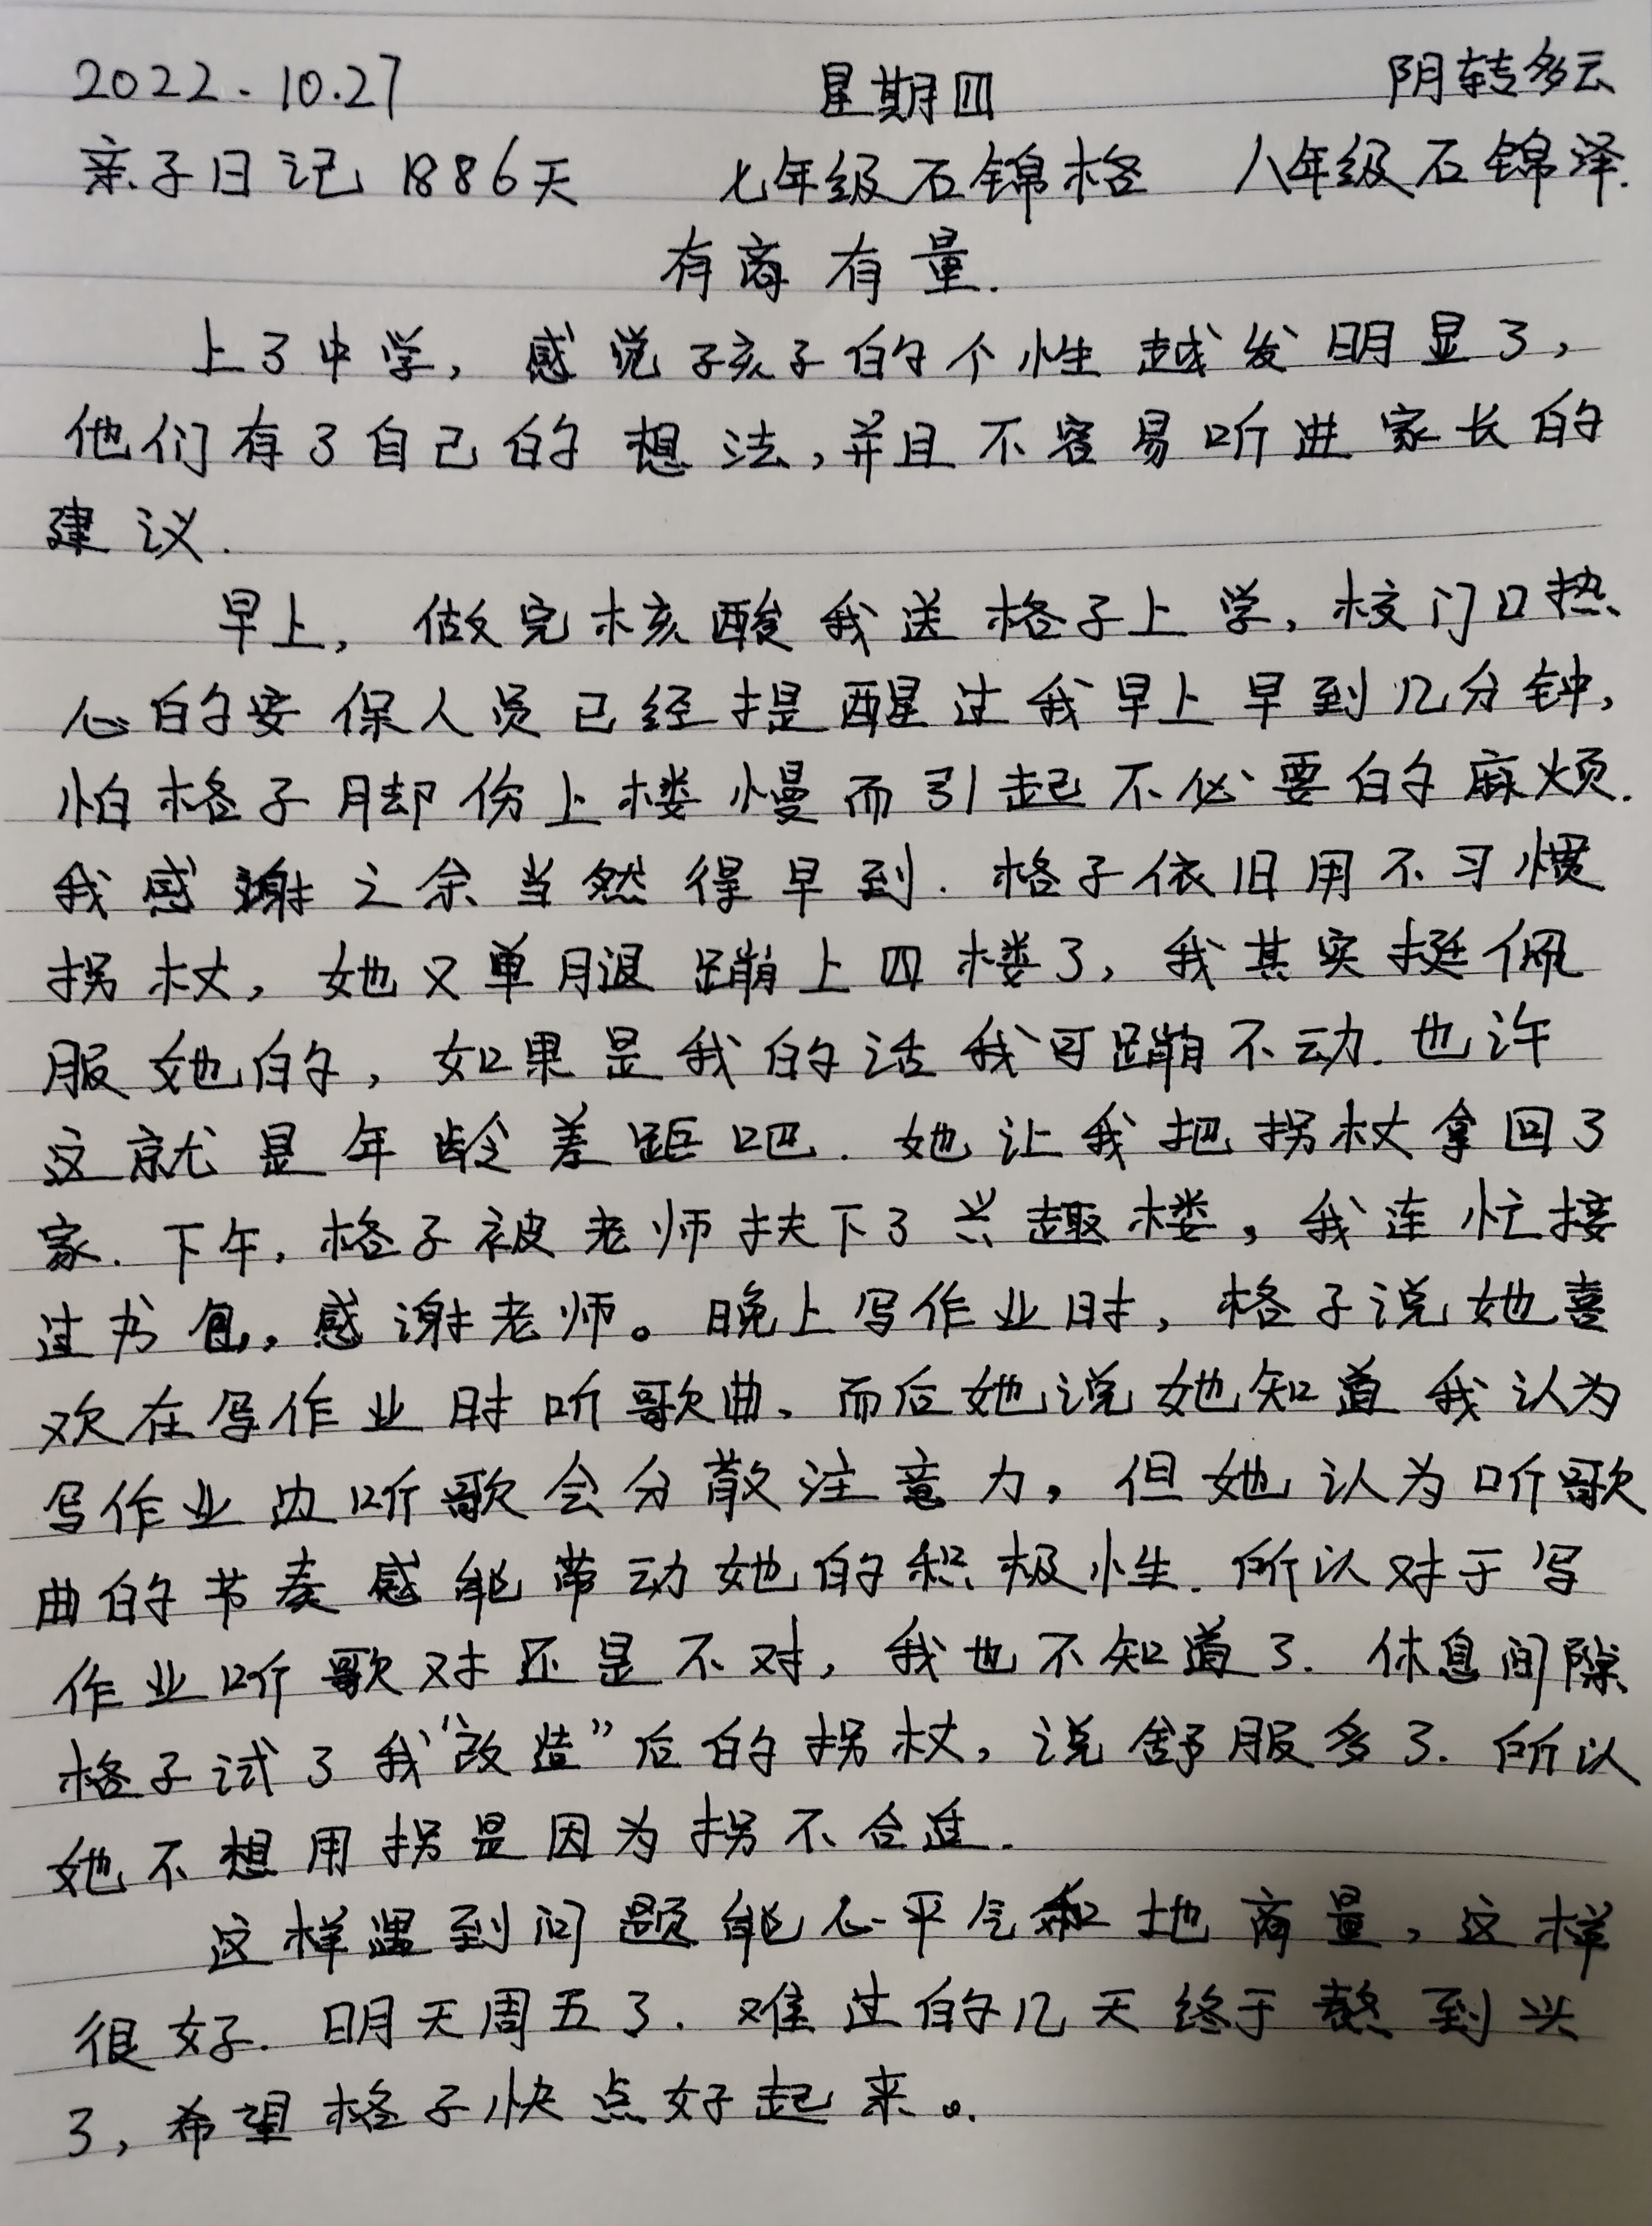 2022.10.27 星期四 阴转多云
亲子日记 1886天 七年级石锦格 八年级石锦泽.
有商有量.
上了中学，感觉孩子的个性越发明显了，
他们有了自己的想法，并且不容易听进家长的
建议.
早上，做完核酸我送格子上学，校门口热
心的安保人员已经提醒过我早上早到几分钟，
怕格子脚伤上楼慢而引起不必要的麻烦.
我感谢之余当然得早到.格子依旧用不习惯
拐杖，她又单腿蹦上四楼了，我其实挺佩
服她的，如果是我的话我可蹦不动.也许
这就是年龄差距吧.她让我把拐杖拿回了
家.下午，格子被老师扶下了兴趣楼，我连忙接
过书包，感谢老师。晚上写作业时，格子说她喜
欢在写作业时听歌曲、而后她说她知道我认为
写作业边听歌会分散注意力，但她认为听歌
曲的节奏感能带动她的积极性.所以对于写
作业听歌对还是不对，我也不知道了.休息间隙
格子试了我“改造”后的拐杖，说舒服多了.所以
她不想用拐是因为拐不合适.
这样遇到问题能心平气和地商量，这样
很好.明天周五了.难过的几天终于熬到头
了，希望格子快点好起来。